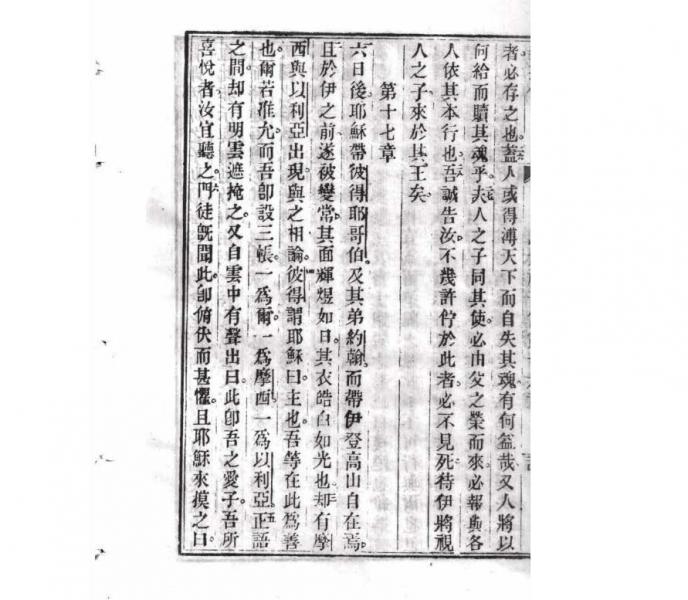 者必存之也蓋人或得溥天下而自失其魂有何益哉又人將以
何給而贖其魂乎夫人之子同其使必由父之榮而來必報與各
人依其本行也吾誠告汝不幾許佇於此者必不見死待伊將視
人之子來於其王矣
第十七章
六日後耶穌帶彼得耶哥伯及其弟約翰而帶伊登高山自在焉
且於伊之前遂被變當其面輝煜如日其衣皓白如光也却有摩
西與以利亞出現與之相論彼得謂耶穌曰主也吾等在此為善
也爾若准允而吾卽設三帳一為爾一為摩西一為以利亞正語
之間却有明雲遮掩之又自雲中有聲出曰此卽吾之愛子吾所
喜悅者汝宜聽之門徒旣聞此卽俯伏而甚懼且耶穌來摸之曰